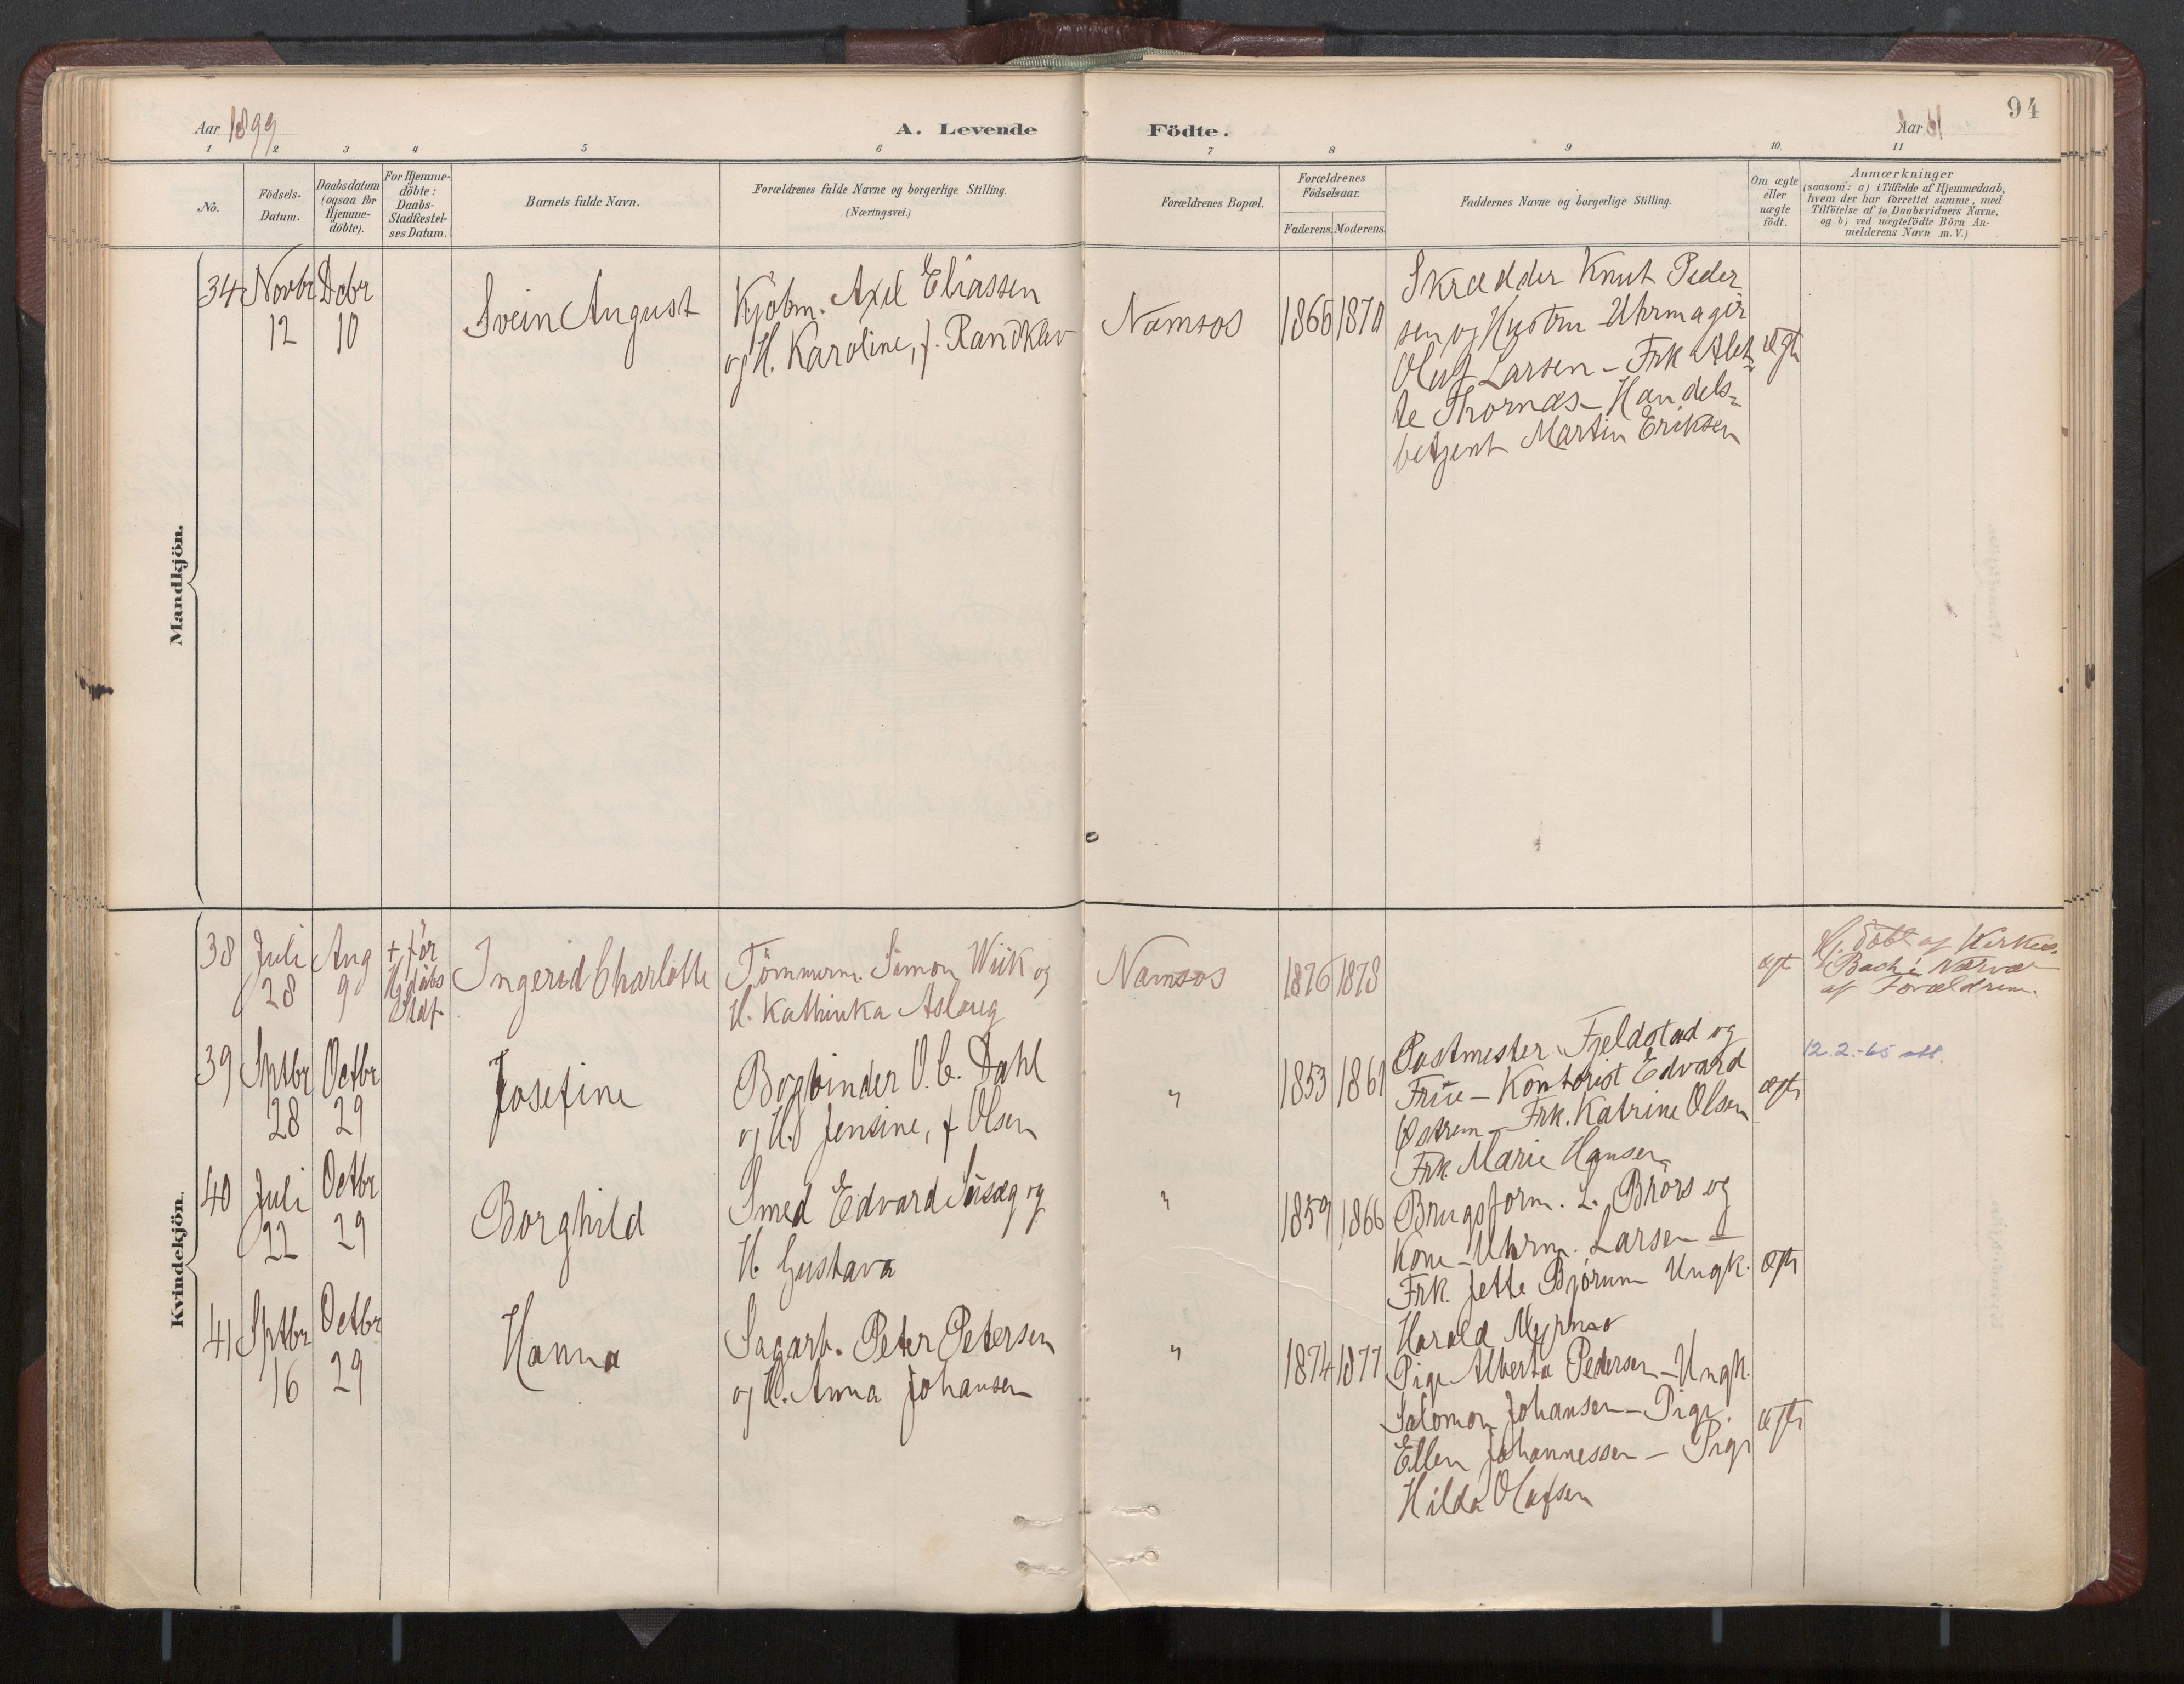 94
Aar 1899
A. Levende Födte.
Aar
1 2 3 4 5 6 7 8 9 10 11
No.
Födsels-Datum.
Daabsdatum (ogsaa for Hjemme-döbte).
For Hjemme-döbte: Daabs-Stadfæstel-ses Datum.
Barnets fulde Navn.
Forældrenes fulde Navne og borgerlige Stilling.
(Næringsvei.)
Forældrenes Bopæl.
Forældrenes Födselsaar.
Faderens. Moderens.
Faddernes Navne og borgerlige Stilling.
Om ægte eller uægte födt.
Anmærkninger
(saasom: a) i Tilfælde af Hjemmedaab,
hvem der har forrettet samme, med
Tilföielse af to Daabsvidners Navne.
og b) ved uægtefödte Börn An-
melderens Navn m. V.)
Mandkjön.
34 Novbr 12 Dcbr 10
Svein August
Kjöbm. Axel Eliassen
og H. Karoline, f.
Namsos
1866
Skrædder Knut Peder
sen og Hustru Uhrmager
Oluf Larsen - Frk Alet
te Thornæs - Handels-
betjent Martin Eriksen
ægte
Kvindekjön.
38 Juli 28 Aug 9
+ för Hjdaabs Stadf.
Ingerid Charlotte
Tömmerm. Simon Wiik og
H. Kathinka Aslaug
Namsos
1876 1878
ægte
Hj. döbt af Kirkes.
Bach i Nærvær
af Forældrene.
39 Sptbr 28 Octbr 29
Josefine
Bogbinder O. C. Dahl
og H. Jensine, f Olsen
"
1853 1861
Postmester Fjeldstad og
Frue - Kontorist Edvard
Østrem - Frk. Katrine Olsen
Frk. Marie Hansen
ægte
12.2.-65 att.
40 Juli 22 Octbr 29
Borghild
Smed Edvard og
H. Gustava
"
1859 1866
Brugsform. L. Brörs og
Kone - Uhrm. Larsen -
Frk. Jette Bjørum Ungk.
Harald
ægte
41 Sptbr 16 Octbr 29
Hanna
Sagarb. Peter Petersen
og H. Anna Johansen
"
1874 1877
Pige Alberta Pedersen - Ungk.
Salomon Johansen - Pige
Ellen Johannessen - Pige
Hilda Olafsen
ægte